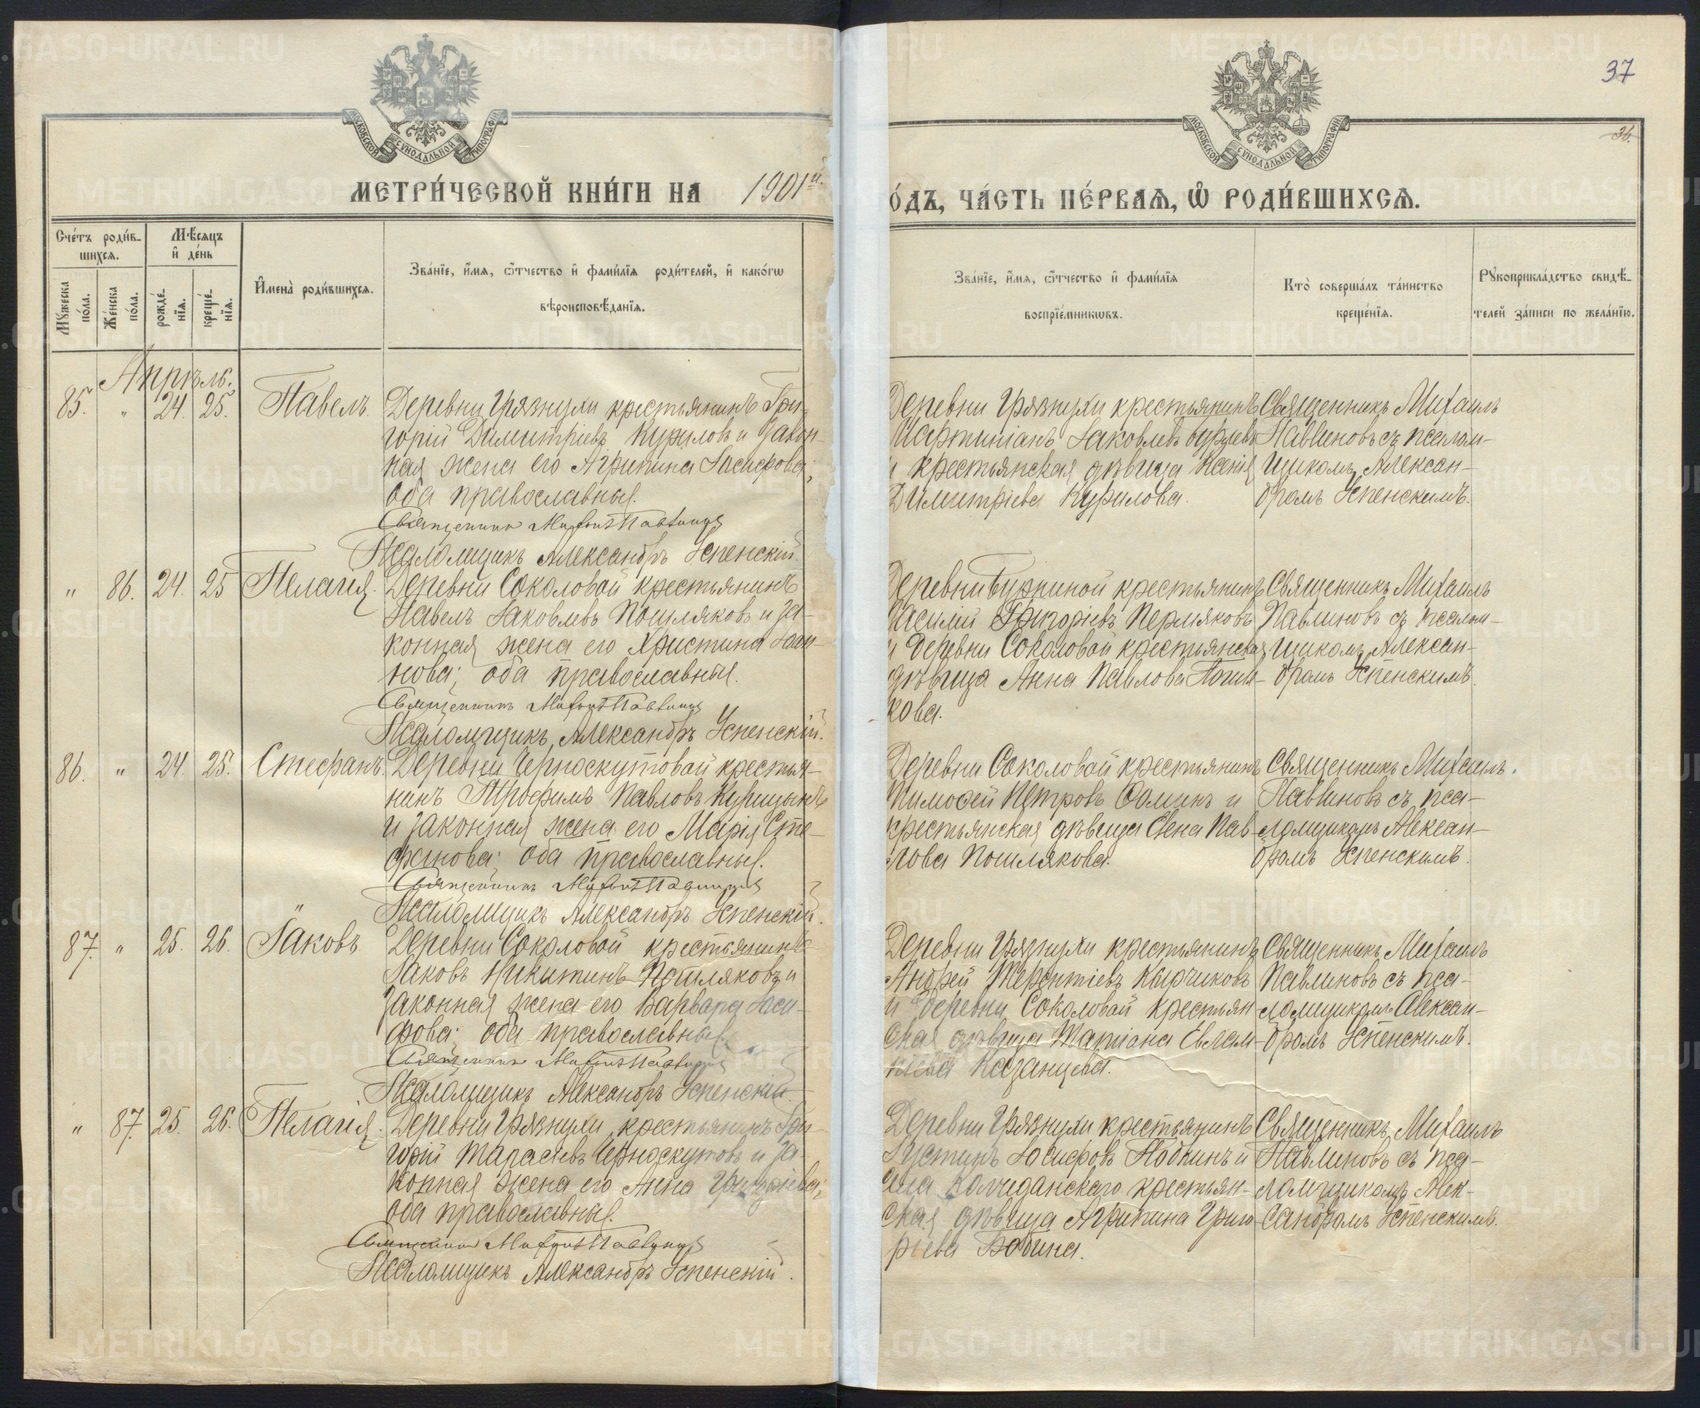 37
36.
МОСКОВСКОЙ СѴНОДАЛЬНОЙ ТИПОГРАФІИ
МОСКОВСКОЙ СѴНОДАЛЬНОЙ ТИПОГРАФІИ
МЕТРИ́ЧЕСКОЙ КНИ́ГИ НА 1901й.
О́ДЪ, ЧА́СТЬ ПЕ́РВАѦ, Ѿ РОДИ́ВШИХСѦ.
Сче́тъ роди́в-
шихсѧ.
Мꙋ́жеска по́ла.
Же́нска по́ла.
Мѣ́сѧцъ
и҆ де́нь
рожде́-
нїѧ.
креще́-
нїѧ.
И҆мена̀ роди́вшихсѧ.
Зва́нїе, и҆́мѧ, ѻ҆́тчество и҆ фами́лїѧ роди́телей, и҆ како́гѡ
вѣроисповѣ́данїѧ.
Зва́нїе, и҆́мѧ, ѻ҆́тчество и҆ фами́лїѧ
воспрїе́мникѡвъ.
Кто̀ соверша́лъ та́инство
креще́нїѧ.
Рꙋкоприкла́дство свидѣ́-
телей за́писи по жела́нїю.
Апрѣль.
85. " 24. 25. Павелъ.
Деревни Грязнухи крестьянинъ Гри-
горій Димитріевъ Курилов и закон-
ная жена его Агрипина Іосифова;
оба православные.
Священникъ Михаил Павлинов
Псаломщикъ Александръ Успенскій
Деревни Грязнухи крестьянинъ
Мартиніанъ Іаковлевъ
и крестьянская дѣвица Ксенія
Димитріева Курилова.
Священникъ Михаилъ
Павлиновъ съ псалом-
щикомъ Алексан-
дромъ Успенскимъ.
" 86. 24. 25 Пелагія.
Деревни Соколовой крестьянинъ
Павелъ Іаковлевъ Пошляковъ и за-
конная жена его Христина Іоан-
нова; оба православные.
Священникъ Михаил Павлинов
Псаломщикъ Александръ Успенскій.
Деревни крестьянинъ
Василій Григоріевъ Пермяковъ
и деревни Соколовой крестьянская
дѣвица Анна Павлова Пошля-
кова.
Священникъ Михаилъ
Павлиновъ съ псалом-
щикомъ Алексан-
дромъ Успенскимъ.
86. " 24. 25. Стефанъ.
Деревни Черноскутовой крестья-
нинъ Трофимъ Павловъ Курицынъ
и законная жена его Марія Сте-
фанова; оба православные.
Священникъ Михаил Павлинов
Псаломщикъ Александръ Успенскій.
Деревни Соколовой крестьянинъ
Тимофей Петровъ и
крестьянская дѣвица Елена Пав-
лова Пошлякова.
Священникъ Михаилъ.
Павлиновъ съ пса-
ломщикомъ Алексан-
дромъ Успенскимъ.
87. " 25. 26. Іаковъ
Деревни Соколовой крестьянинъ
Іаковъ Никитинъ Пошляковъ и
законная жена его Варвара Іоси-
фова; оба православные.
Священникъ Михаил Павлинов
Псаломщикъ Александръ Успенскій.
Деревни Грязнухи крестьянинъ
Андрей Терентіевъ Кырчиковъ
и деревни Соколовой крестьян-
ская дѣвица Маріана Евлам-
піева Казанцева.
Священникъ Михаилъ
Павлиновъ съ пса-
ломщикомъ Алексан-
дромъ Успенскимъ.
" 87. 25. 26. Пелагія.
Деревни Грязнухи, крестьянинъ Гри-
горій Тарасіевъ Черноскутовъ и за-
конная жена его Анна Григоріева;
оба православные.
Священникъ Михаил Павлинов
Псаломщикъ Александръ Успенскій.
Деревни Грязнухи крестьянинъ
Іустинъ Іосифовъ Бабкинъ и
села Колчеданскаго крестьян-
ская дѣвица Агрипина Григо-
рьева Бабина.
Священникъ Михаилъ
Павлиновъ съ пса-
ломщикомъ Алек-
сандромъ Успенскимъ.
METRIKI.GASO-URAL.RU